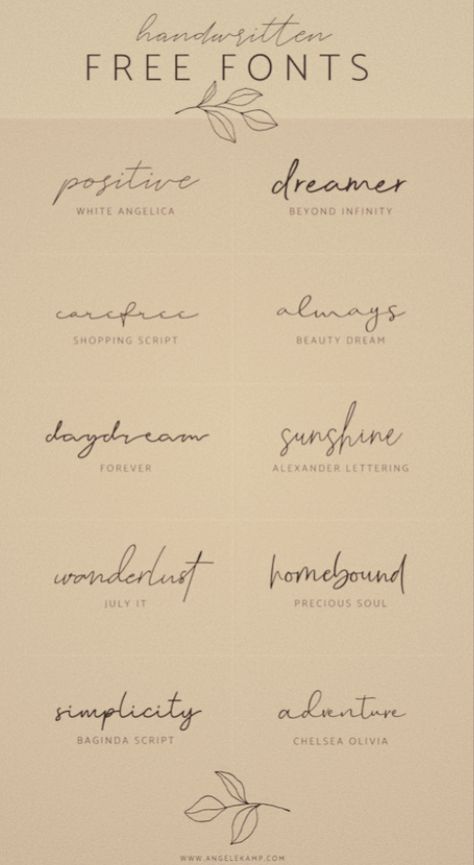 handwritten
FREE FONTS
positive
WHITE ANGELICA
dreamer
BEYOND INFINITY
carefree
SHOPPING SCRIPT
always
BEAUTY DREAM
daydream
FOREVER
sunshine
ALEXANDER LETTERING
wanderlust
JULY IT
homebound
PRECIOUS SOUL
simplicity
BAGINDA SCRIPT
adventure
CHELSEA OLIVIA
WWW.ANGELEKAMP.COM